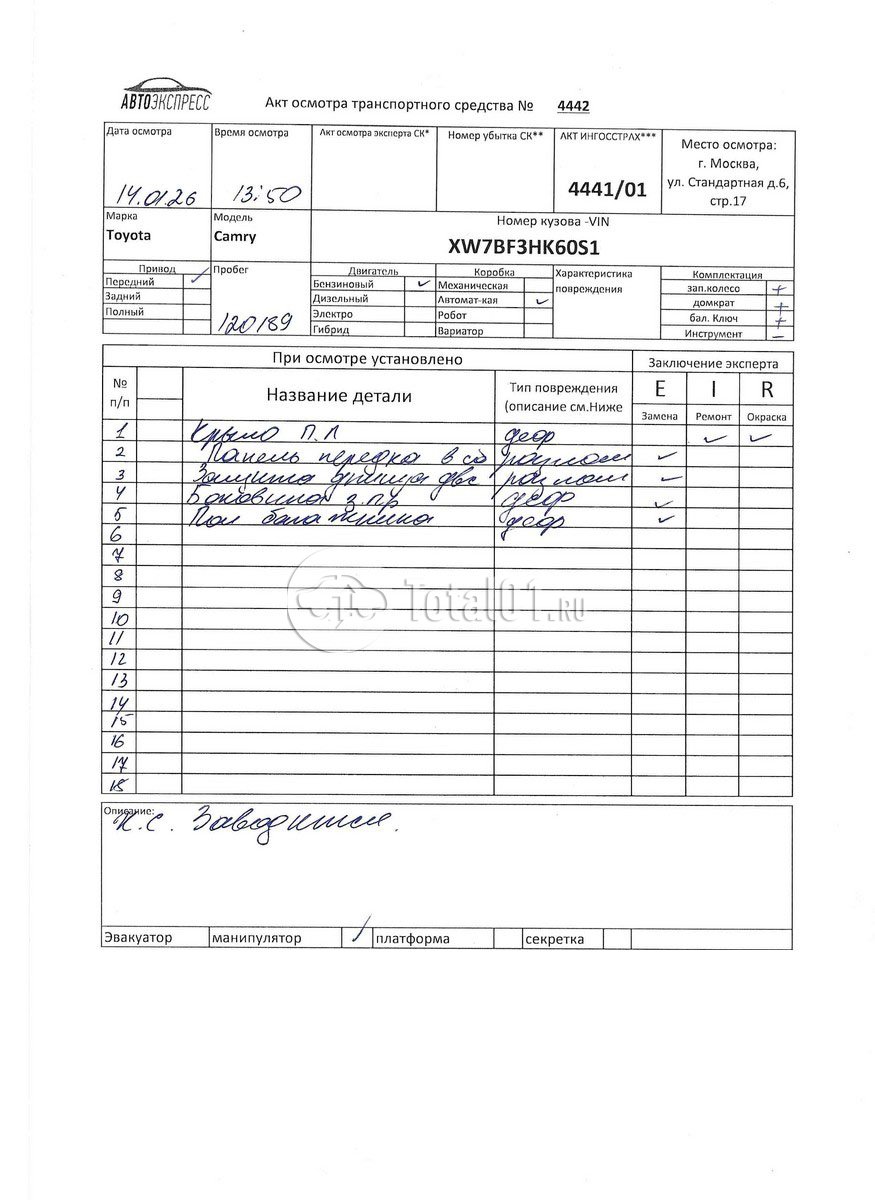 АВТОЭКСПРЕСС
Акт осмотра транспортного средства № 4442
Дата осмотра
14.01.26
Время осмотра
13:50
Акт осмотра эксперта СК*
Номер убытка СК**
АКТ ИНГОССТРАХ***
4441/01
Место осмотра:
г. Москва,
ул. Стандартная д.6,
стр.17
Марка
Toyota
Модель
Camry
Номер кузова -VIN
XW7BF3HK60S1
Привод
Передний ✓
Задний
Полный
Пробег
120189
Двигатель
Бензиновый ✓
Дизельный
Электро
Гибрид
Коробка
Механическая
Автомат-кая ✓
Робот
Вариатор
Характеристика
повреждения
Комплектация
зап.колесо +
домкрат +
бал. Ключ +
Инструмент –
При осмотре установлено
Заключение эксперта
№
п/п
Название детали
Тип повреждения
(описание см.Ниже
E I R
Замена Ремонт Окраска
1 Крыло П.Л деф ✓ ✓
2 Панель передка в сб разлом ✓
3 Защита днища двс разлом ✓
4 Боковина з.пр деф ✓
5 Пол багажника деф ✓
6
7
8
9
10
11
12
13
14
15
16
17
18
Total01.RU
Описание:
Н.С. Заводится.
Эвакуатор манипулятор ✓ платформа секретка